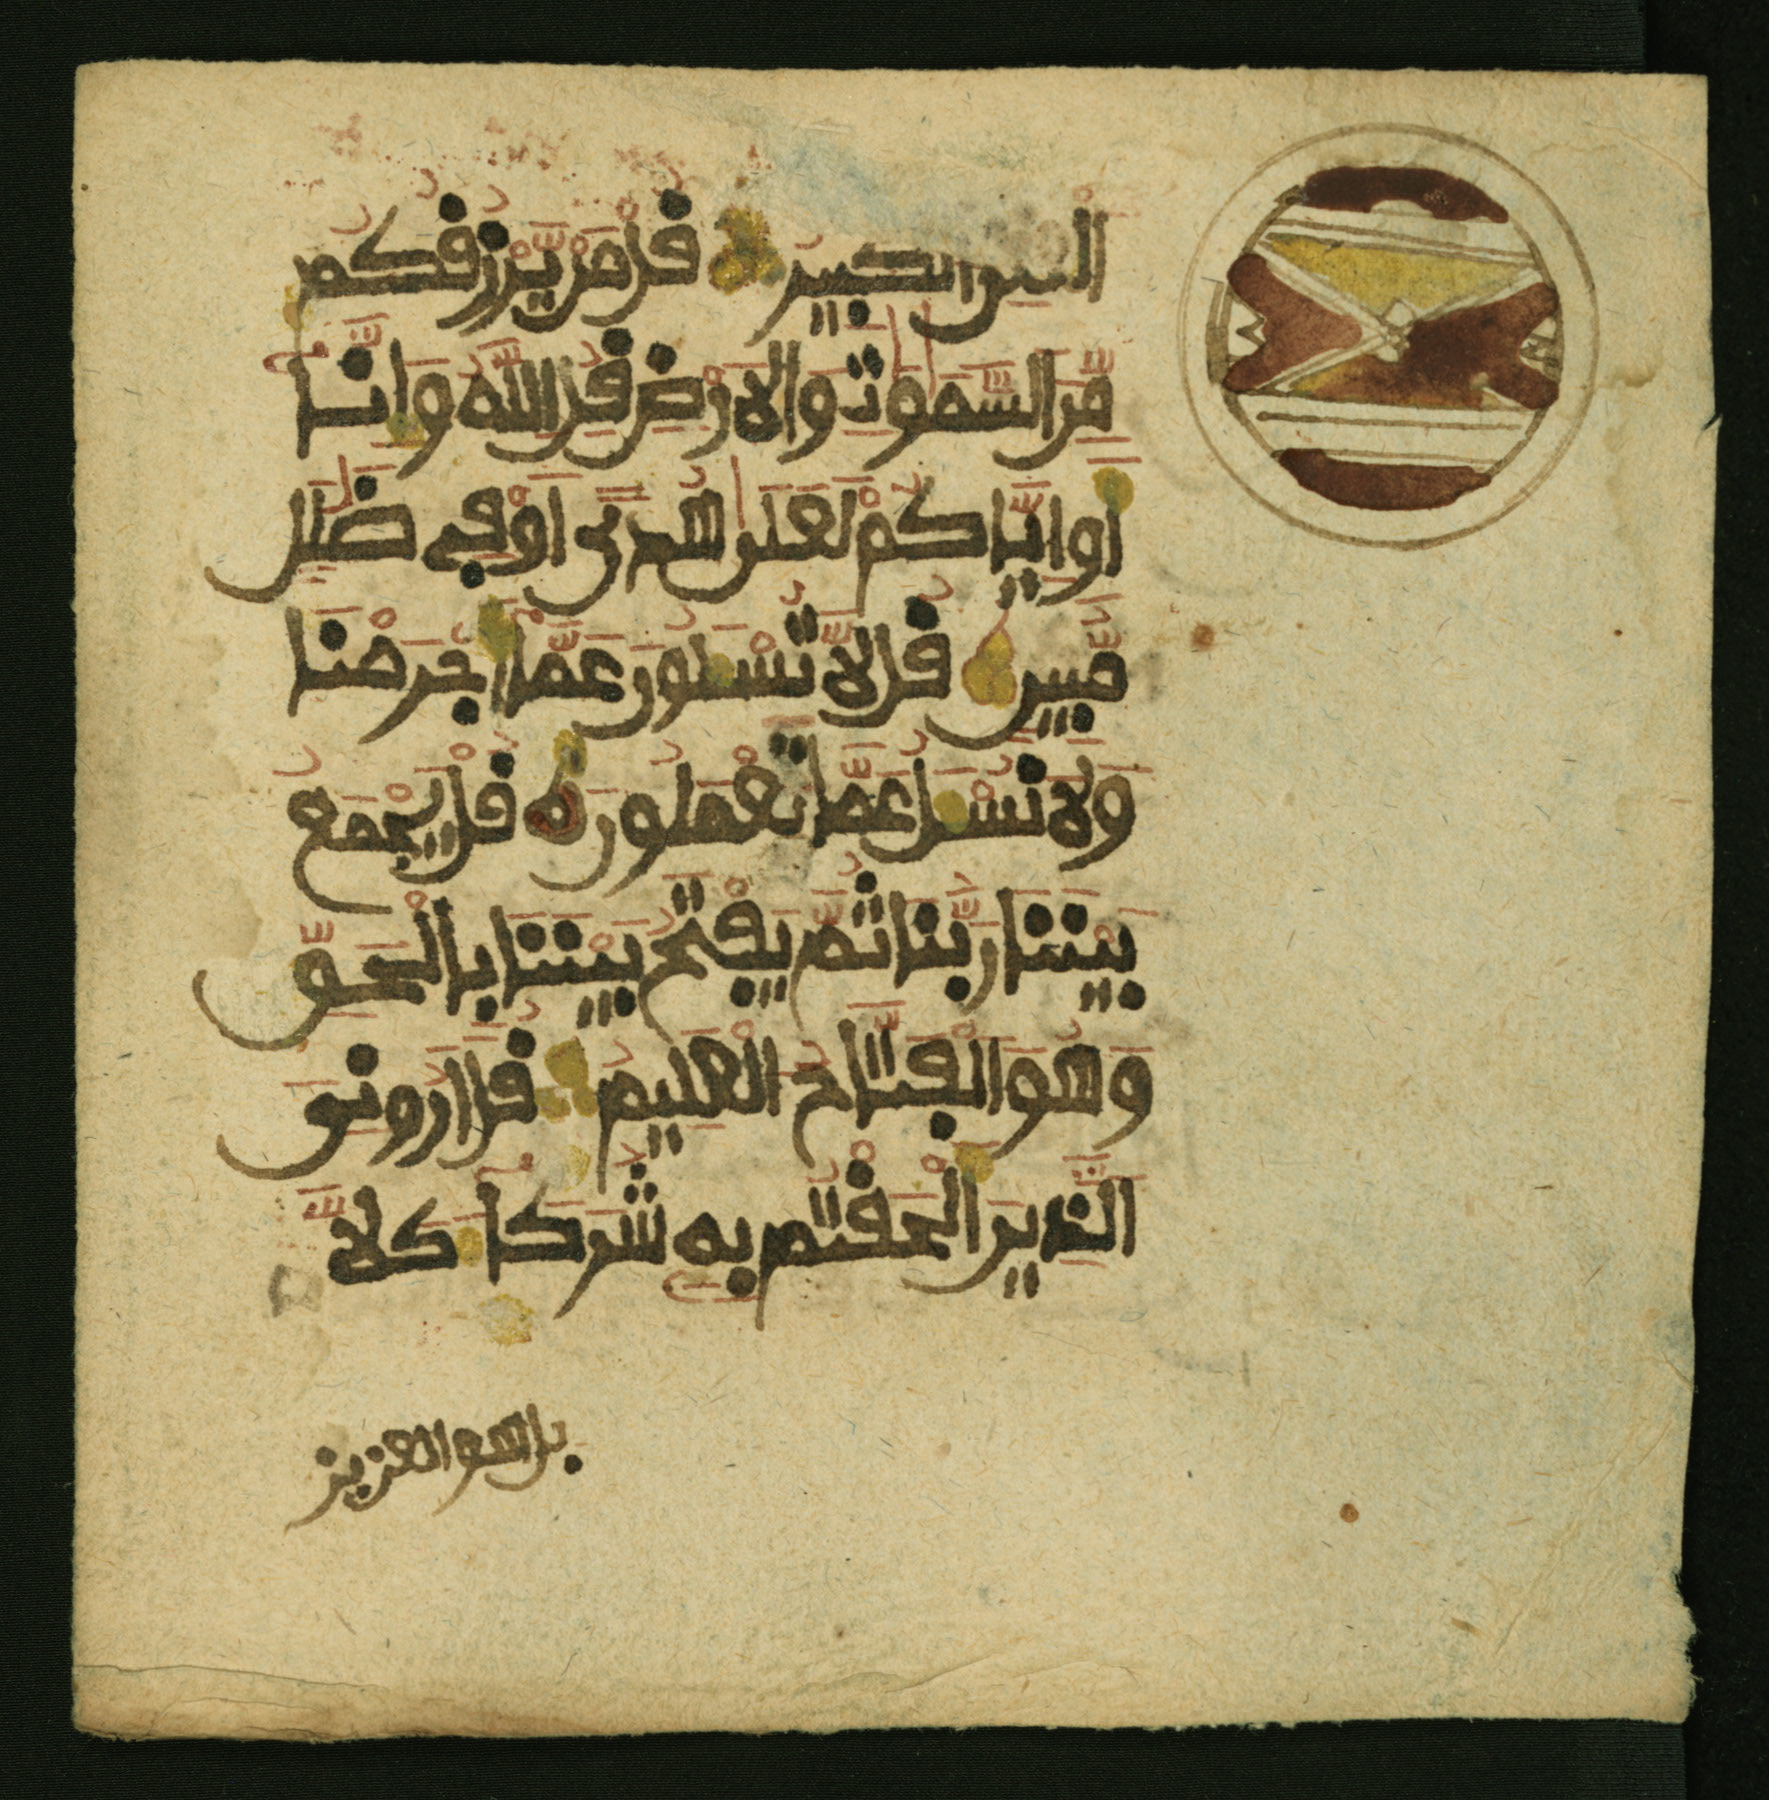 العلي الكبير قُلْ مَنْ يَّرْزُقُكُم
مِّنَ السَّمَٰوَٰتِ وَالَارْضِ قُلِ اللَّهُ وَإِنَّا
أَوِ ايَّاكُمْ لَعَلَىٰ هُدىً اَوْ فِي ضَلَٰلٍ
مُّبِينٍ قُل لَّا تُسْـَٔلُونَ عَمَّا أَجْرَمْنَا
وَلَا نُسْـَٔلُ عَمَّا تَعْمَلُونَ قُلْ يَجْمَعُ
بَيْنَنَا رَبُّنَا ثُمَّ يَفْتَحُ بَيْنَنَا بِالْحَقِّ
وَهُوَ الْفَتَّاحُ الْعَلِيمُ قُلَ ارُونِيَ
الَّذِينَ أَلْحَقْتُم بِهِ شُرَكَآءَ كَلَّا
بل هو العزيز